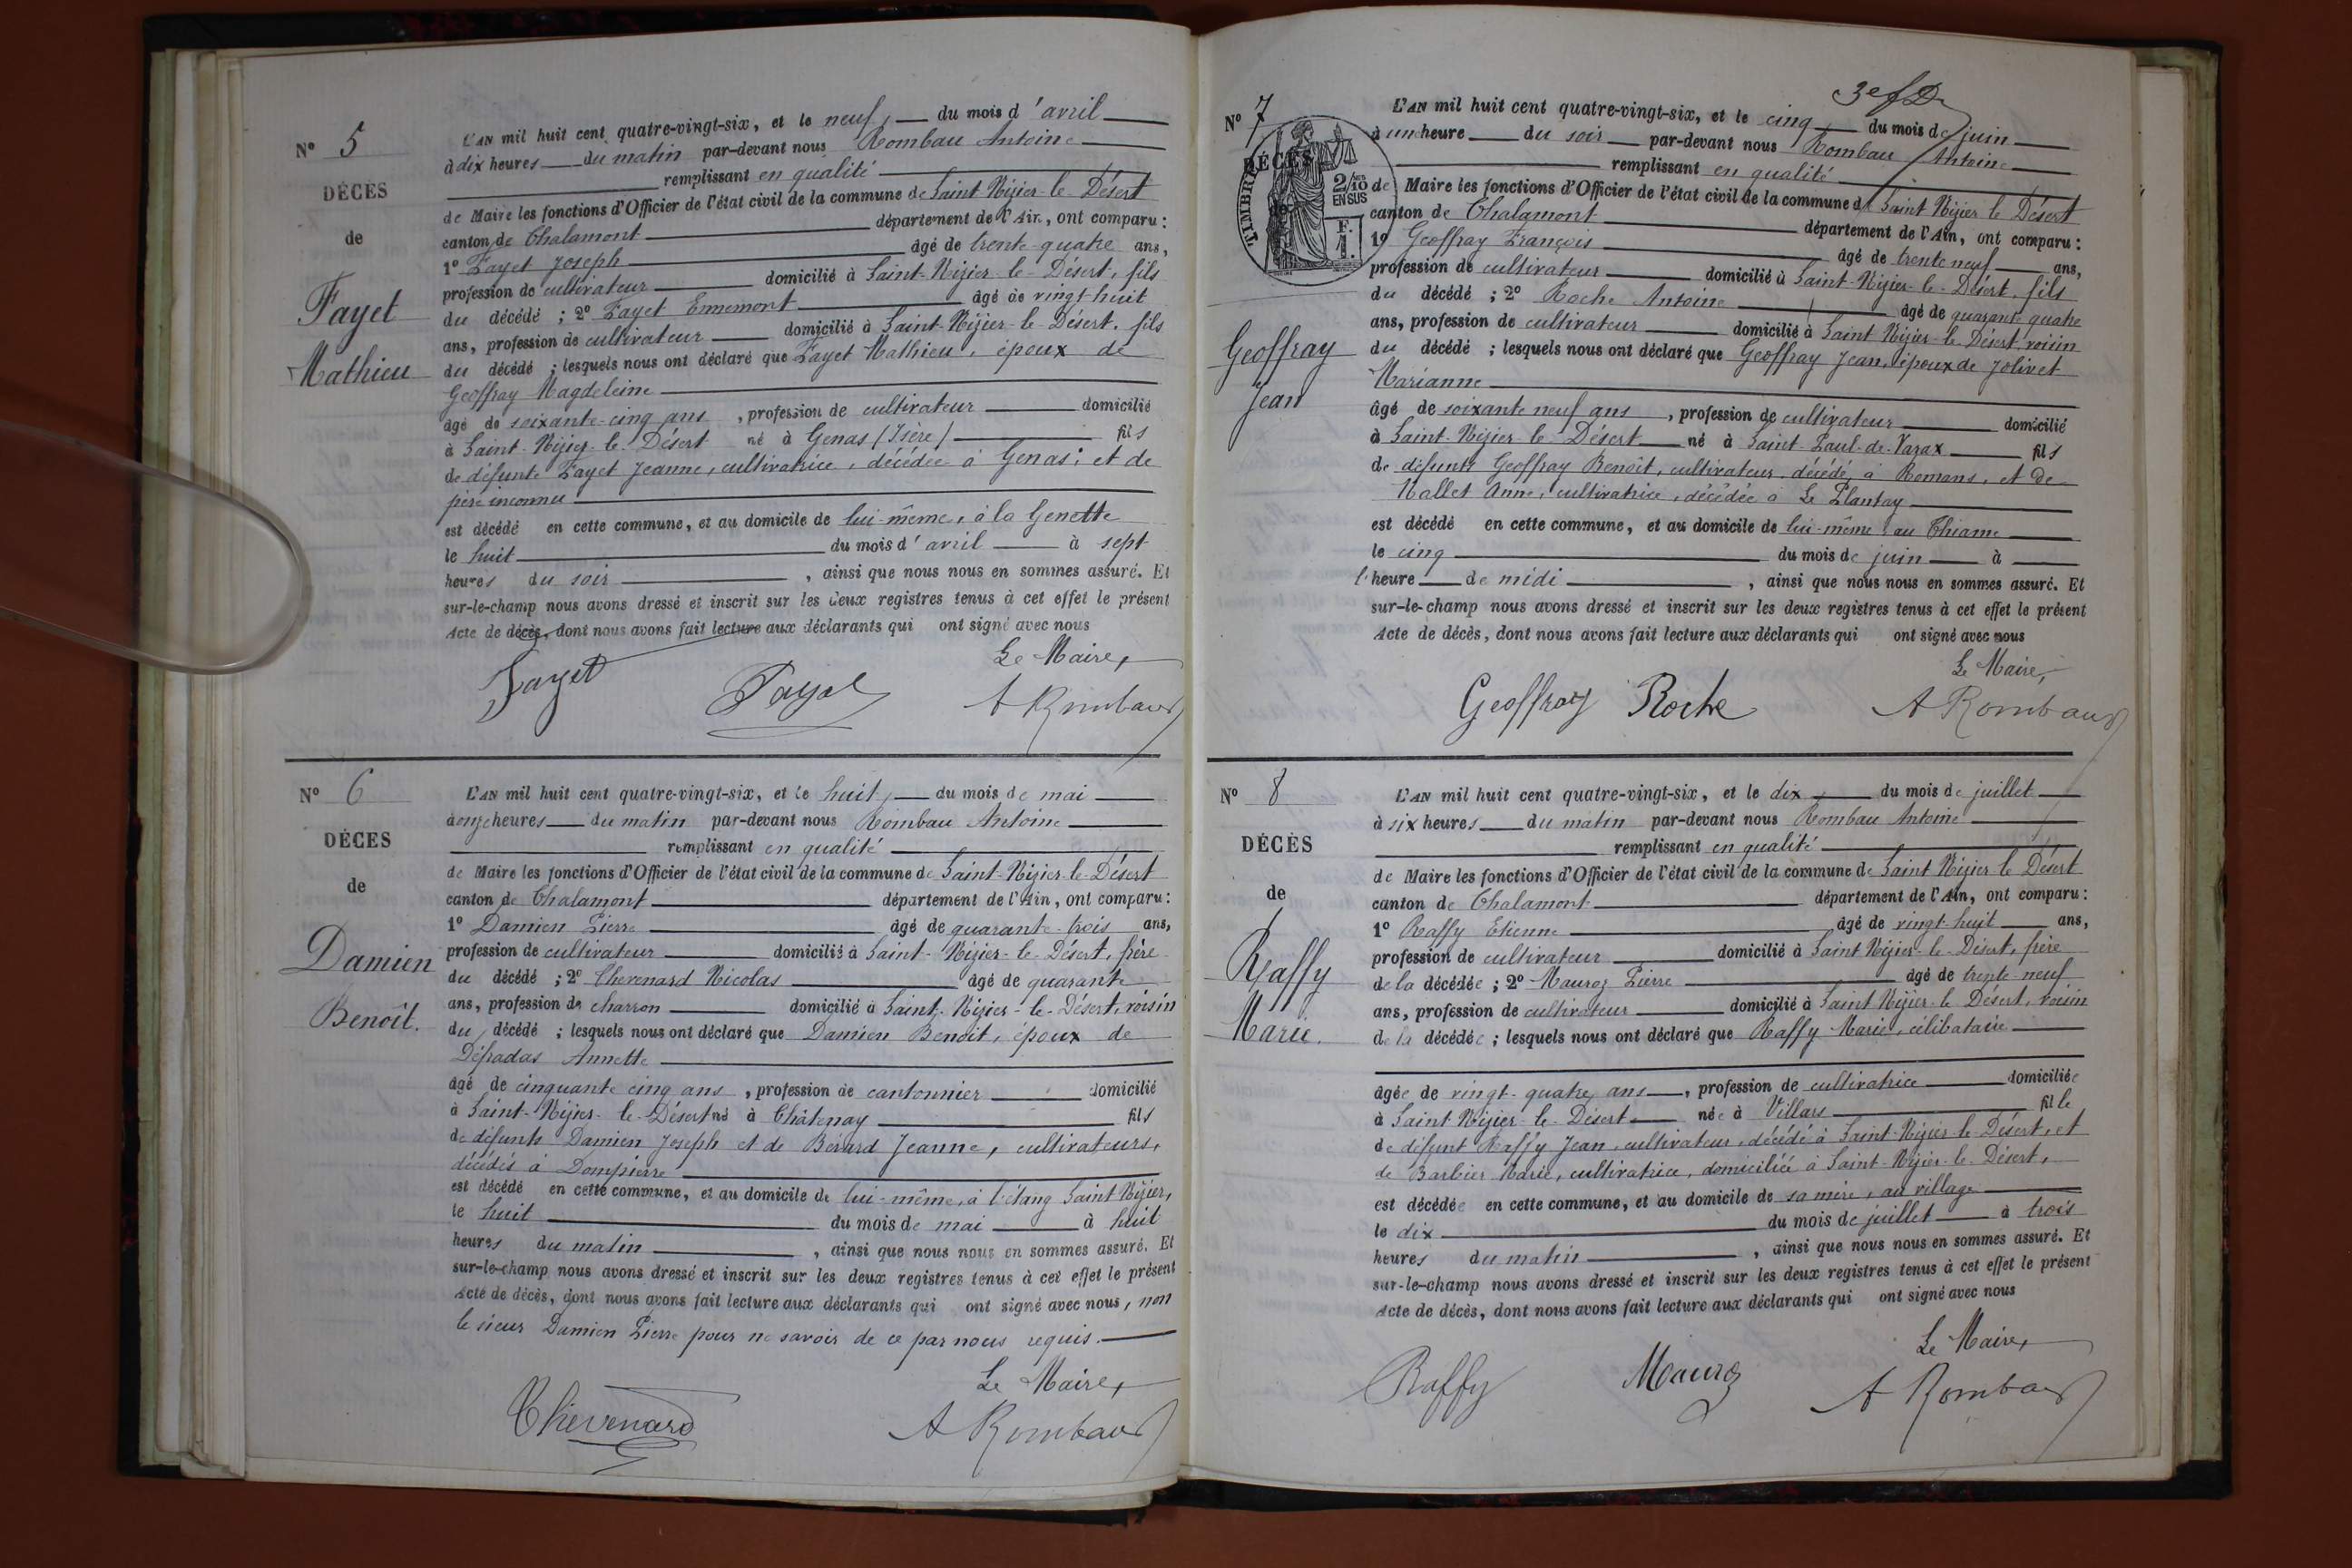 N° 5
DÉCÈS
de
Fayet
Mathieu
L'AN mil huit cent quatre-vingt-six, et le neuf, du mois d'avril
à dix heures du matin par-devant nous Rombau Antoine
remplissant en qualité
de Maire les fonctions d'Officier de l'état civil de la commune de Saint-Nizier-le-Désert
canton de Chalamont département de l'Ain, ont comparu :
1° Fayet Joseph âgé de trente-quatre ans,
profession de cultivateur domicilié à Saint-Nizier-le-Désert, fils
du décédé ; 2° Fayet Ennemont âgé de vingt-huit
ans, profession de cultivateur domicilié à Saint-Nizier-le-Désert, fils
du décédé ; lesquels nous ont déclaré que Fayet Mathieu, époux de
Geoffray Magdeleine
âgé de soixante-cinq ans, profession de cultivateur domicilié
à Saint-Nizier-le-Désert né à Genas (Isère) fils
de défunte Fayet Jeanne, cultivatrice, décédée à Genas ; et de
père inconnu
est décédé en cette commune, et au domicile de lui-même, à la Genette
le huit du mois d'avril à sept
heures du soir, ainsi que nous nous en sommes assuré. Et
sur-le-champ nous avons dressé et inscrit sur les deux registres tenus à cet effet le présent
Acte de décès, dont nous avons fait lecture aux déclarants qui ont signé avec nous
Le Maire,
Fayet Fayet A Rombau
N° 6
DÉCES
de
Damien
Benoît.
L'AN mil huit cent quatre-vingt-six, et le huit, du mois de mai
à onze heures du matin par-devant nous Rombau Antoine
remplissant en qualité
de Maire les fonctions d'Officier de l'état civil de la commune de Saint-Nizier-le-Désert
canton de Chalamont département de l'Ain, ont comparu :
1° Damien Pierre âgé de quarante-trois ans,
profession de cultivateur domicilié à Saint-Nizier-le-Désert, frère
du décédé ; 2° Chevenard Nicolas âgé de quarante
ans, profession de charron domicilié à Saint-Nizier-le-Désert, voisin
du décédé ; lesquels nous ont déclaré que Damien Benoît, époux de
Défradas Annette
âgé de cinquante cinq ans, profession de cantonnier domicilié
à Saint-Nizier-le-Désert né à Châtenay fils
de défunts Damien Joseph et de Berard Jeanne, cultivateurs,
décédés à Dompierre
est décédé en cette commune, et au domicile de lui-même, à l'étang Saint Nizier,
le huit du mois de mai à huit
heures du matin, ainsi que nous nous en sommes assuré. Et
sur-le-champ nous avons dressé et inscrit sur les deux registres tenus à cet effet le présent
Acte de décès, dont nous avons fait lecture aux déclarants qui ont signé avec nous, non
le sieur Damien Pierre pour ne savoir de ce par nous requis.
Le Maire,
Chevenard A Rombau
N° 7
DÉCÈS
de
TIMBRE
2/10 EN SUS
F. 1.
Geoffray
Jean
L'AN mil huit cent quatre-vingt-six, et le cinq du mois de juin
à une heure du soir par-devant nous Rombau Antoine
remplissant en qualité
de Maire les fonctions d'Officier de l'état civil de la commune de Saint Nizier le Désert
canton de Chalamont département de l'Ain, ont comparu :
1° Geoffray François âgé de trente neuf ans,
profession de cultivateur domicilié à Saint-Nizier-le-Désert, fils
du décédé ; 2° Roche Antoine âgé de quarante quatre
ans, profession de cultivateur domicilié à Saint Nizier-le-Désert, voisin
du décédé ; lesquels nous ont déclaré que Geoffray Jean, époux de Jolivet
Marianne
âgé de soixante neuf ans, profession de cultivateur domicilié
à Saint-Nizier-le-Désert né à Saint-Paul-de-Varax fils
de défunts Geoffray Benoît, cultivateur, décédé à Romans, et de
Mallet Anne, cultivatrice, décédée à Le Plantay
est décédé en cette commune, et au domicile de lui-même, au Thiame
le cinq du mois de juin à
l'heure de midi, ainsi que nous nous en sommes assuré. Et
sur-le-champ nous avons dressé et inscrit sur les deux registres tenus à cet effet le présent
Acte de décès, dont nous avons fait lecture aux déclarants qui ont signé avec nous
Le Maire,
Geoffray Roche A Rombau
N° 8
DÉCÈS
de
Raffy
Marie.
L'AN mil huit cent quatre-vingt-six, et le dix, du mois de juillet
à six heures du matin par-devant nous Rombau Antoine
remplissant en qualité
de Maire les fonctions d'Officier de l'état civil de la commune de Saint Nizier le Désert
canton de Chalamont département de l'Ain, ont comparu :
1° Raffy Etienne âgé de vingt-huit ans,
profession de cultivateur domicilié à Saint Nizier-le-Désert, frère
de la décédée ; 2° Mauroz Pierre âgé de trente-neuf
ans, profession de cultivateur domicilié à Saint Nizier-le-Désert, voisin
de la décédée ; lesquels nous ont déclaré que Raffy Marie, célibataire
âgée de vingt-quatre ans, profession de cultivatrice domiciliée
à Saint Nizier-le-Désert née à Villars fille
de défunt Raffy Jean, cultivateur, décédé à Saint-Nizier-le-Désert, et
de Barbier Marie, cultivatrice, domiciliée à Saint-Nizier-le-Désert,
est décédée en cette commune, et au domicile de sa mère, au village
le dix du mois de juillet à trois
heures du matin, ainsi que nous nous en sommes assuré. Et
sur-le-champ nous avons dressé et inscrit sur les deux registres tenus à cet effet le présent
Acte de décès, dont nous avons fait lecture aux déclarants qui ont signé avec nous
Le Maire,
Raffy Mauroz A Rombau